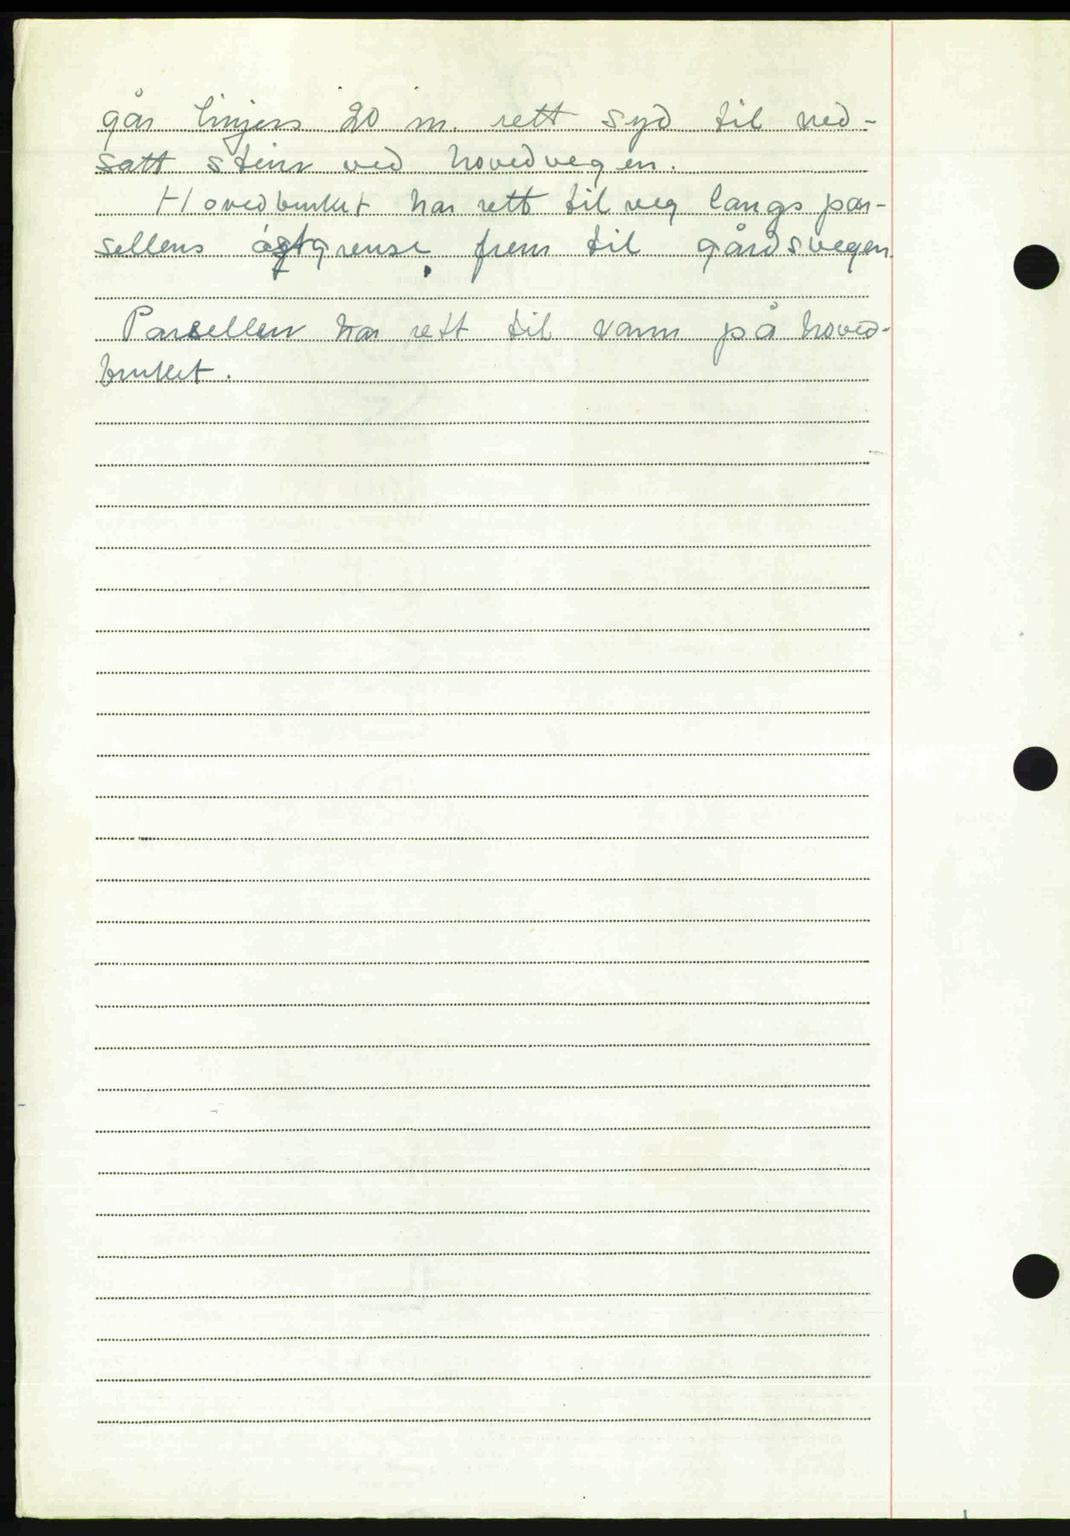 går linjen 20 m. rett syd til ned-
satt stein ved hovedvegen.
Hovedbruket har rett til veg langs par-
sellens østgrense frem til gårdsvegen.
Parsellen har rett til vann på hoved-
bruket.